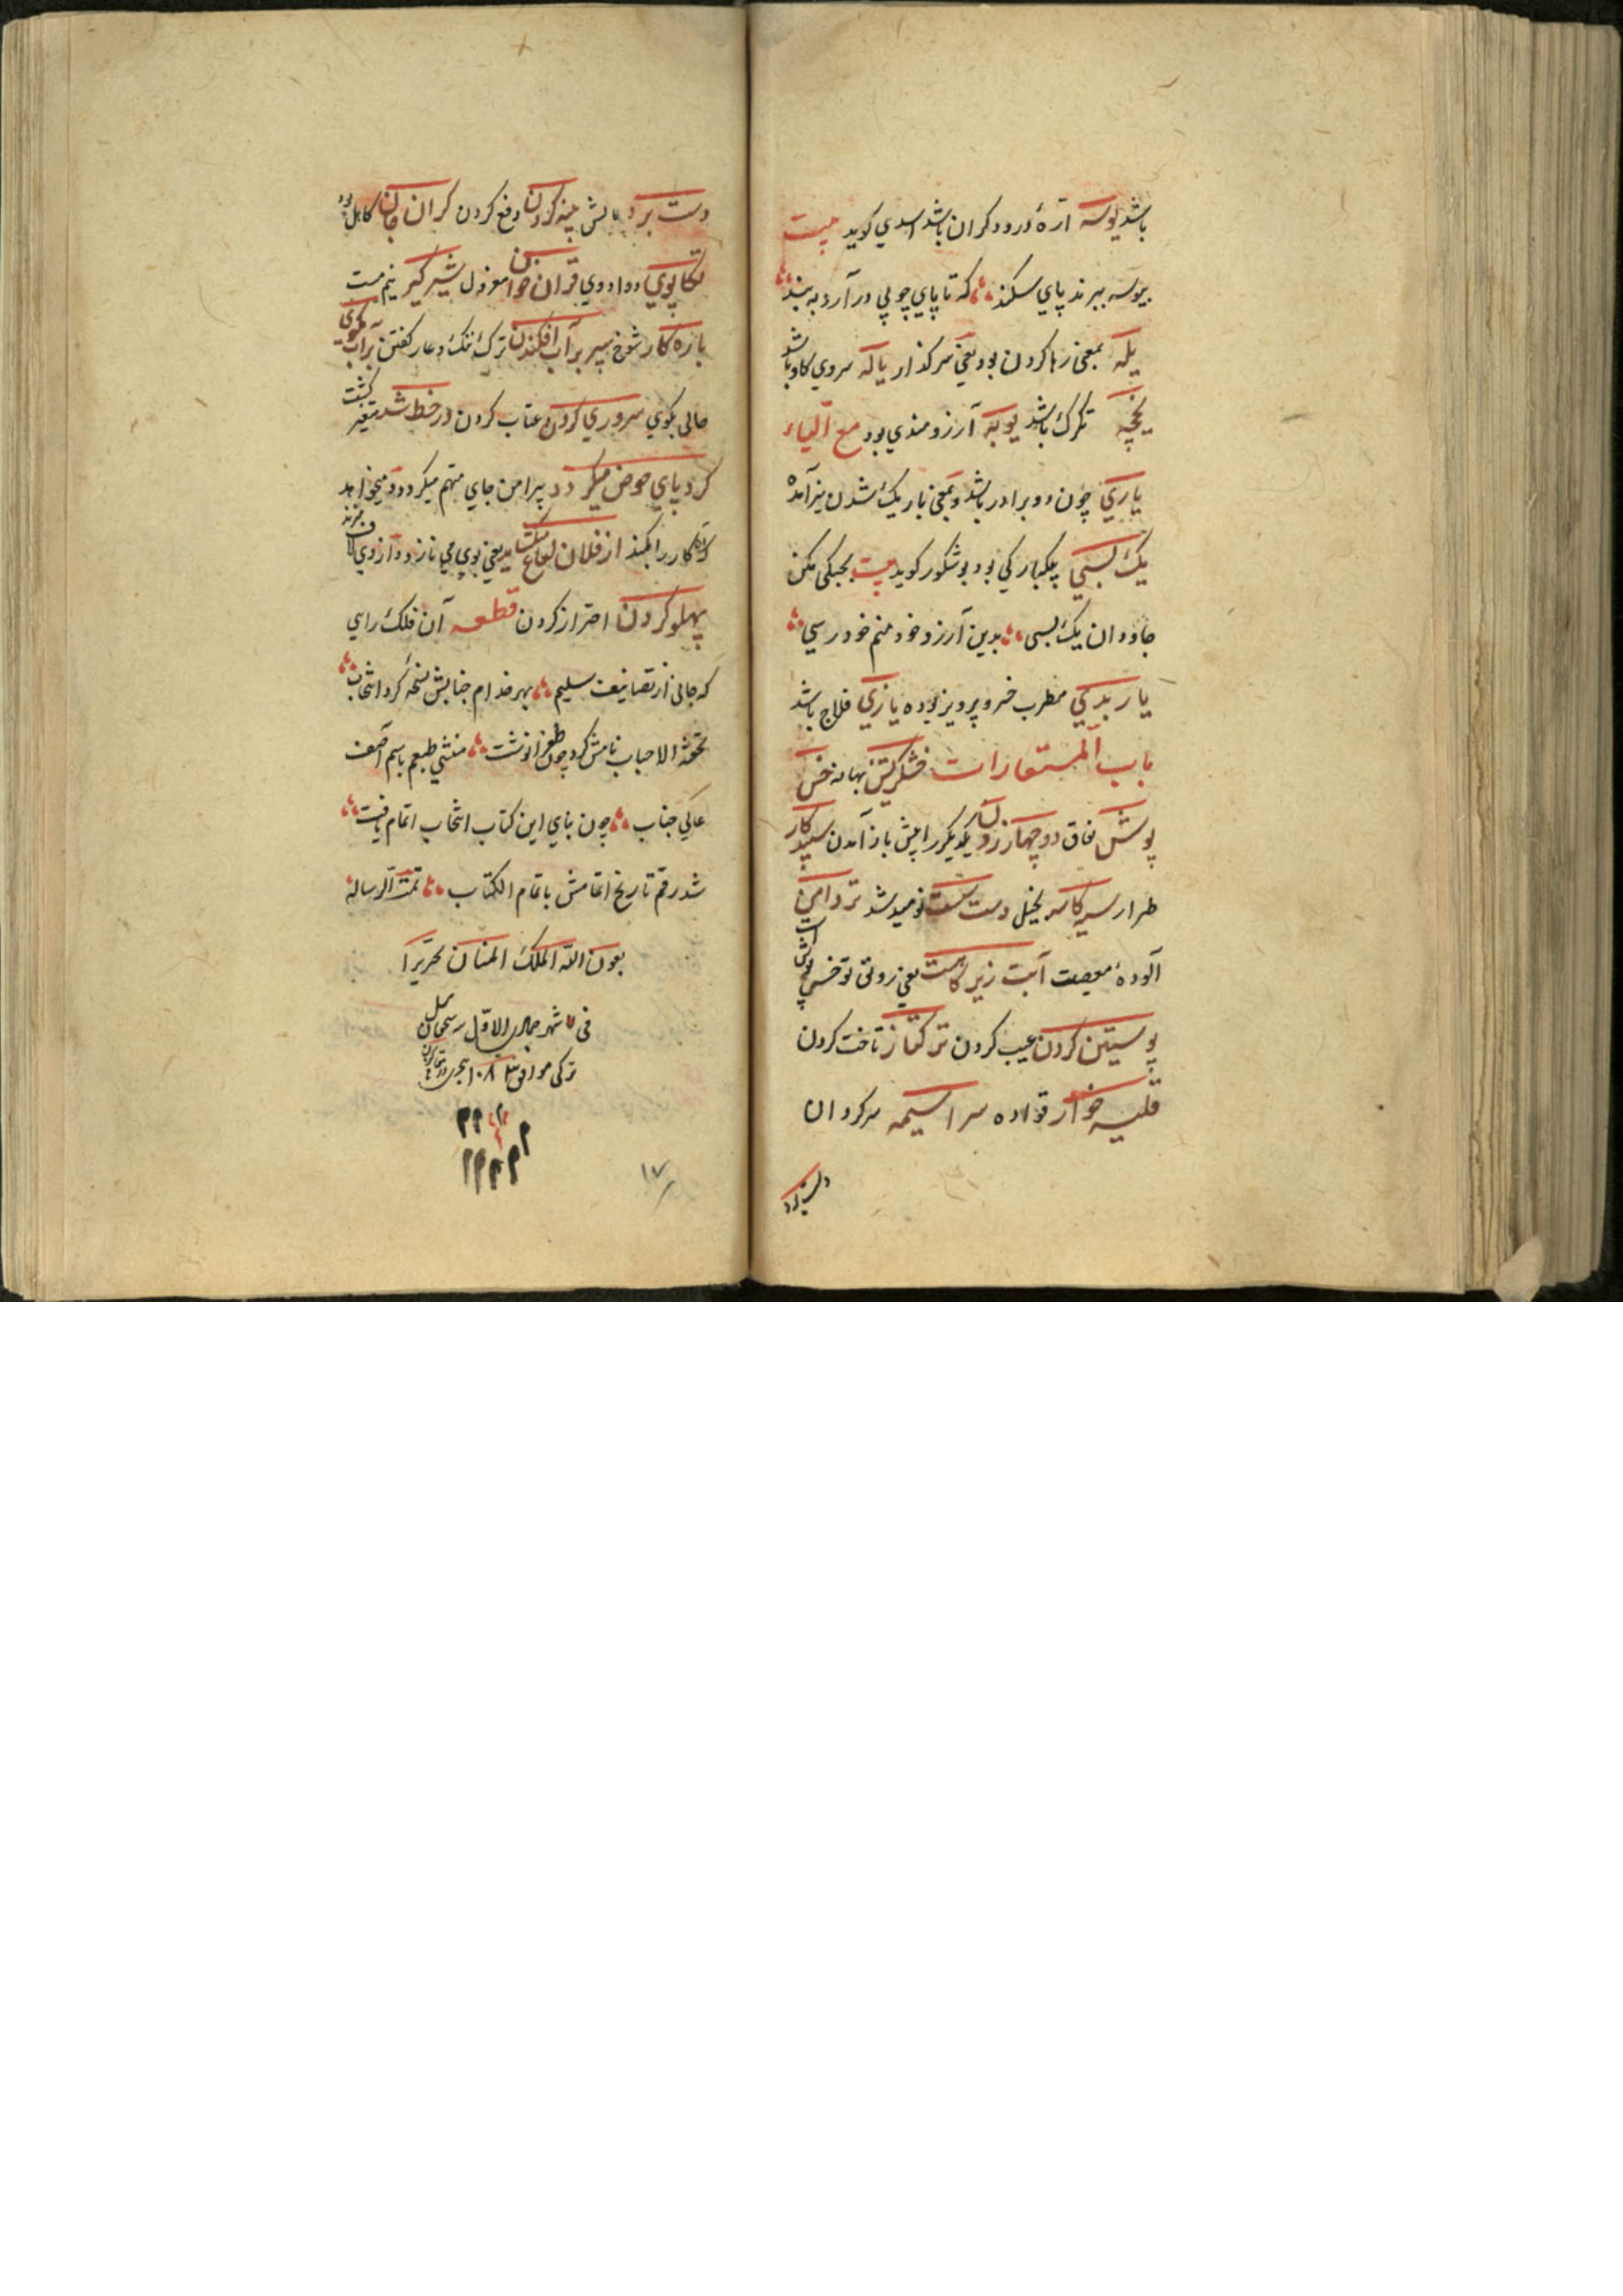 باشد یوسه ارّهٔ درودکران باشد اسدي کوید بیت
بیوسه ببرند پاي سکند که تا پاي چوبي در آرد به بند
یله بمعنی رها کردن بود یعنی سرکذار یا که سروي کاو باشد
یخچه تکرک باشد یوبه آرزومندي بود مع الیاء
یاري چون دو برادر باشد و بمعنی بار یک شدن نیز آمده
یک بسي یکبارکي بود بوشکور کوید بیت مکن
جاودان یک بسی بدین آرزو خود منم خود رسي
یار بدکي مطرب خسرو پرویز بوده یازي فلاح باشد
باب المستعارات خشکریش بهانه خس
پوش نفاق دو چهار زدن یکدیکر را پیش باز آمدن سپید کار
طرار سیه کاسه بخیل دست نومید شد تر دامن
آلودهٔ معصیت آبت زیر کاهست یعنی رونق تو خس پوش است
پوستین کردن عیب کردن ترکتاز تاخت کردن
قلیه خوار قواده سراسیمه سرکردان
دست برد
دست برد مالش پنبه کردن دفع کردن کران جان کاهل بود
تکاپوي دوادوي قران خوان معزول شیر کیر نیم مست
باره کار شوخ سپر بر آب افکندن ترک ننک و عار کفتن بر آب کوي
حالی بکوي سروري کردن عتاب کردن در خط شد متغیر کشت
کرد پاي حوض میکردد پیرامن جاي متهم میکردد و میخواهد
که آن کار را بکند از فلان یعنی بوي مي نازد و از وي لاف میزند
پهلو کردن احتراز کردن قطعه آن فلک راي
که جانی از تصانیف سلیم بهر خدام جنابش نسخهٔ کرد انتخاب
تحفة الاحباب نامش کرد چون طغرا نوشت منشي طبعم باسم آصف
عالي جناب چون بناي این کتاب انتخاب اتمام یافت
شد رقم تاریخ اتمامش باتمام الکتاب تمت الرساله
بعون الله الملک المنان تحریرا
فی ۷ شهر جمادی الاوّل سیچقان ئیل
ترکی موافق ۱۰۸۳ هجری
۱۷